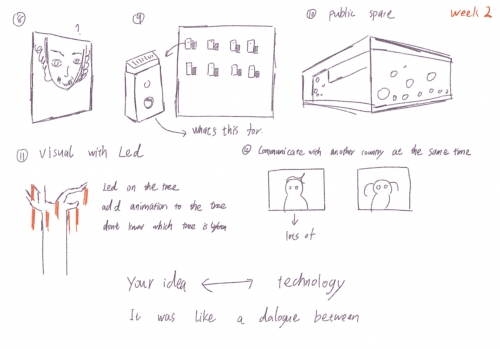 week 2
⑧
?
⑨
whats this for
⑩ public spare
⑪ Visual with Led
Led on the tree
add animation to the tree
dont know which tree is
Communicare with another country at the same time
lots of
Your idea ⟷ technology
It was like a dalogue between